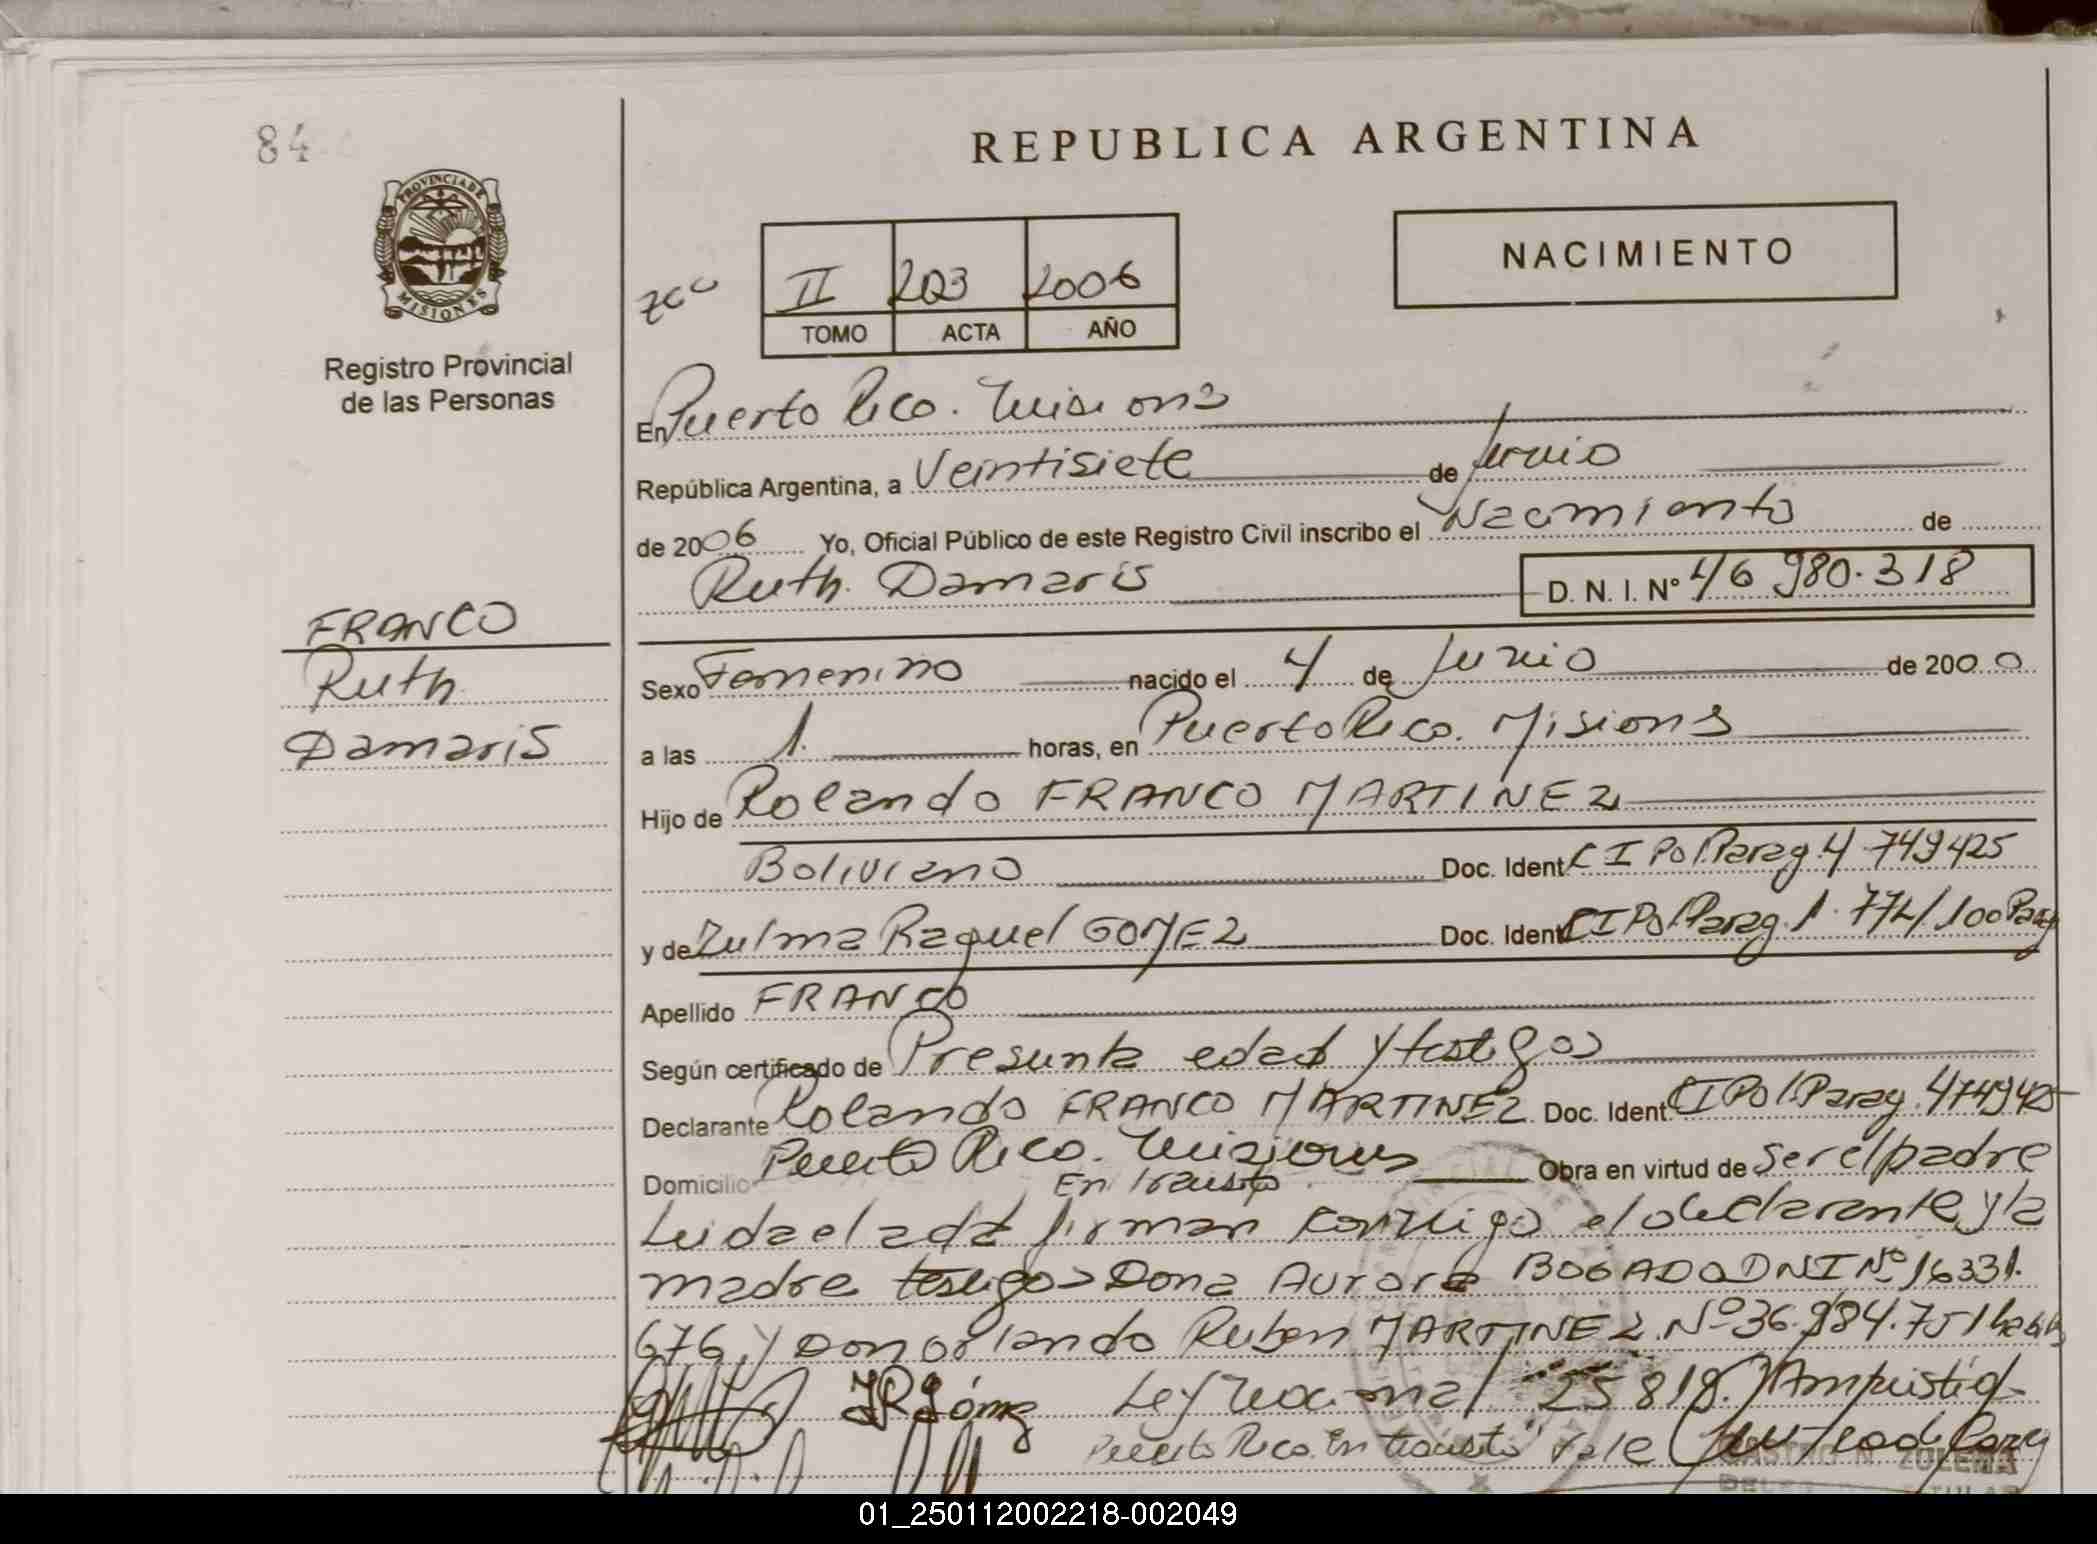 84
REPUBLICA ARGENTINA
PROVINCIA DE
MISIONES
II 203 2006
TOMO ACTA AÑO
NACIMIENTO
Registro Provincial
de las Personas
En Puerto Rico. Misiones
República Argentina, a Veintisiete de Junio
de 2006 Yo, Oficial Público de este Registro Civil inscribo el Nacimiento de
Ruth Damaris D. N. I. Nº 46 980.318
FRANCO
Ruth
Damaris
Sexo Femenino nacido el 4 de Junio de 2000
a las 1. horas, en Puerto Rico. Misions
Hijo de Rolando FRANCO MARTINEZ
Boliviano Doc. Ident CI Pol Parag 4 749425
y de Zulma Raquel GOMEZ Doc. Ident CI Pol Parag. 1. 774/100 Parag
Apellido FRANCO
Según certificado de Presunta edad y testigos
Declarante Rolando FRANCO MARTINEZ Doc. Ident. CI Pol Parag. 4749425
Domicilio Puerto Rico. Misiones Obra en virtud de ser el padre
En transito
Leida el acta firman conmigo el declarante y la
madre testigos Dona Aurora BOGADO DNI Nº 16331.
676 y Don Orlando Ruben MARTINEZ Nº 36.984.751
Ley Nacional 25818.
Puerto Rico. En transito Vale
CASTRO N. ZULEMA
01_250112002218-002049